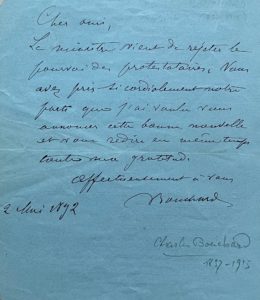 Cher ami,
Le ministre vient de rejeter le
pourvoi des protestataires. Vous
avez pris si cordialement notre
parti que j'ai voulu vous
annoncer cette bonne nouvelle
et vous redire en même temps
toute ma gratitude.
Affectueusement à vous
Bouchard
2 Mai 1892
Charles Bouchard
1837-1915